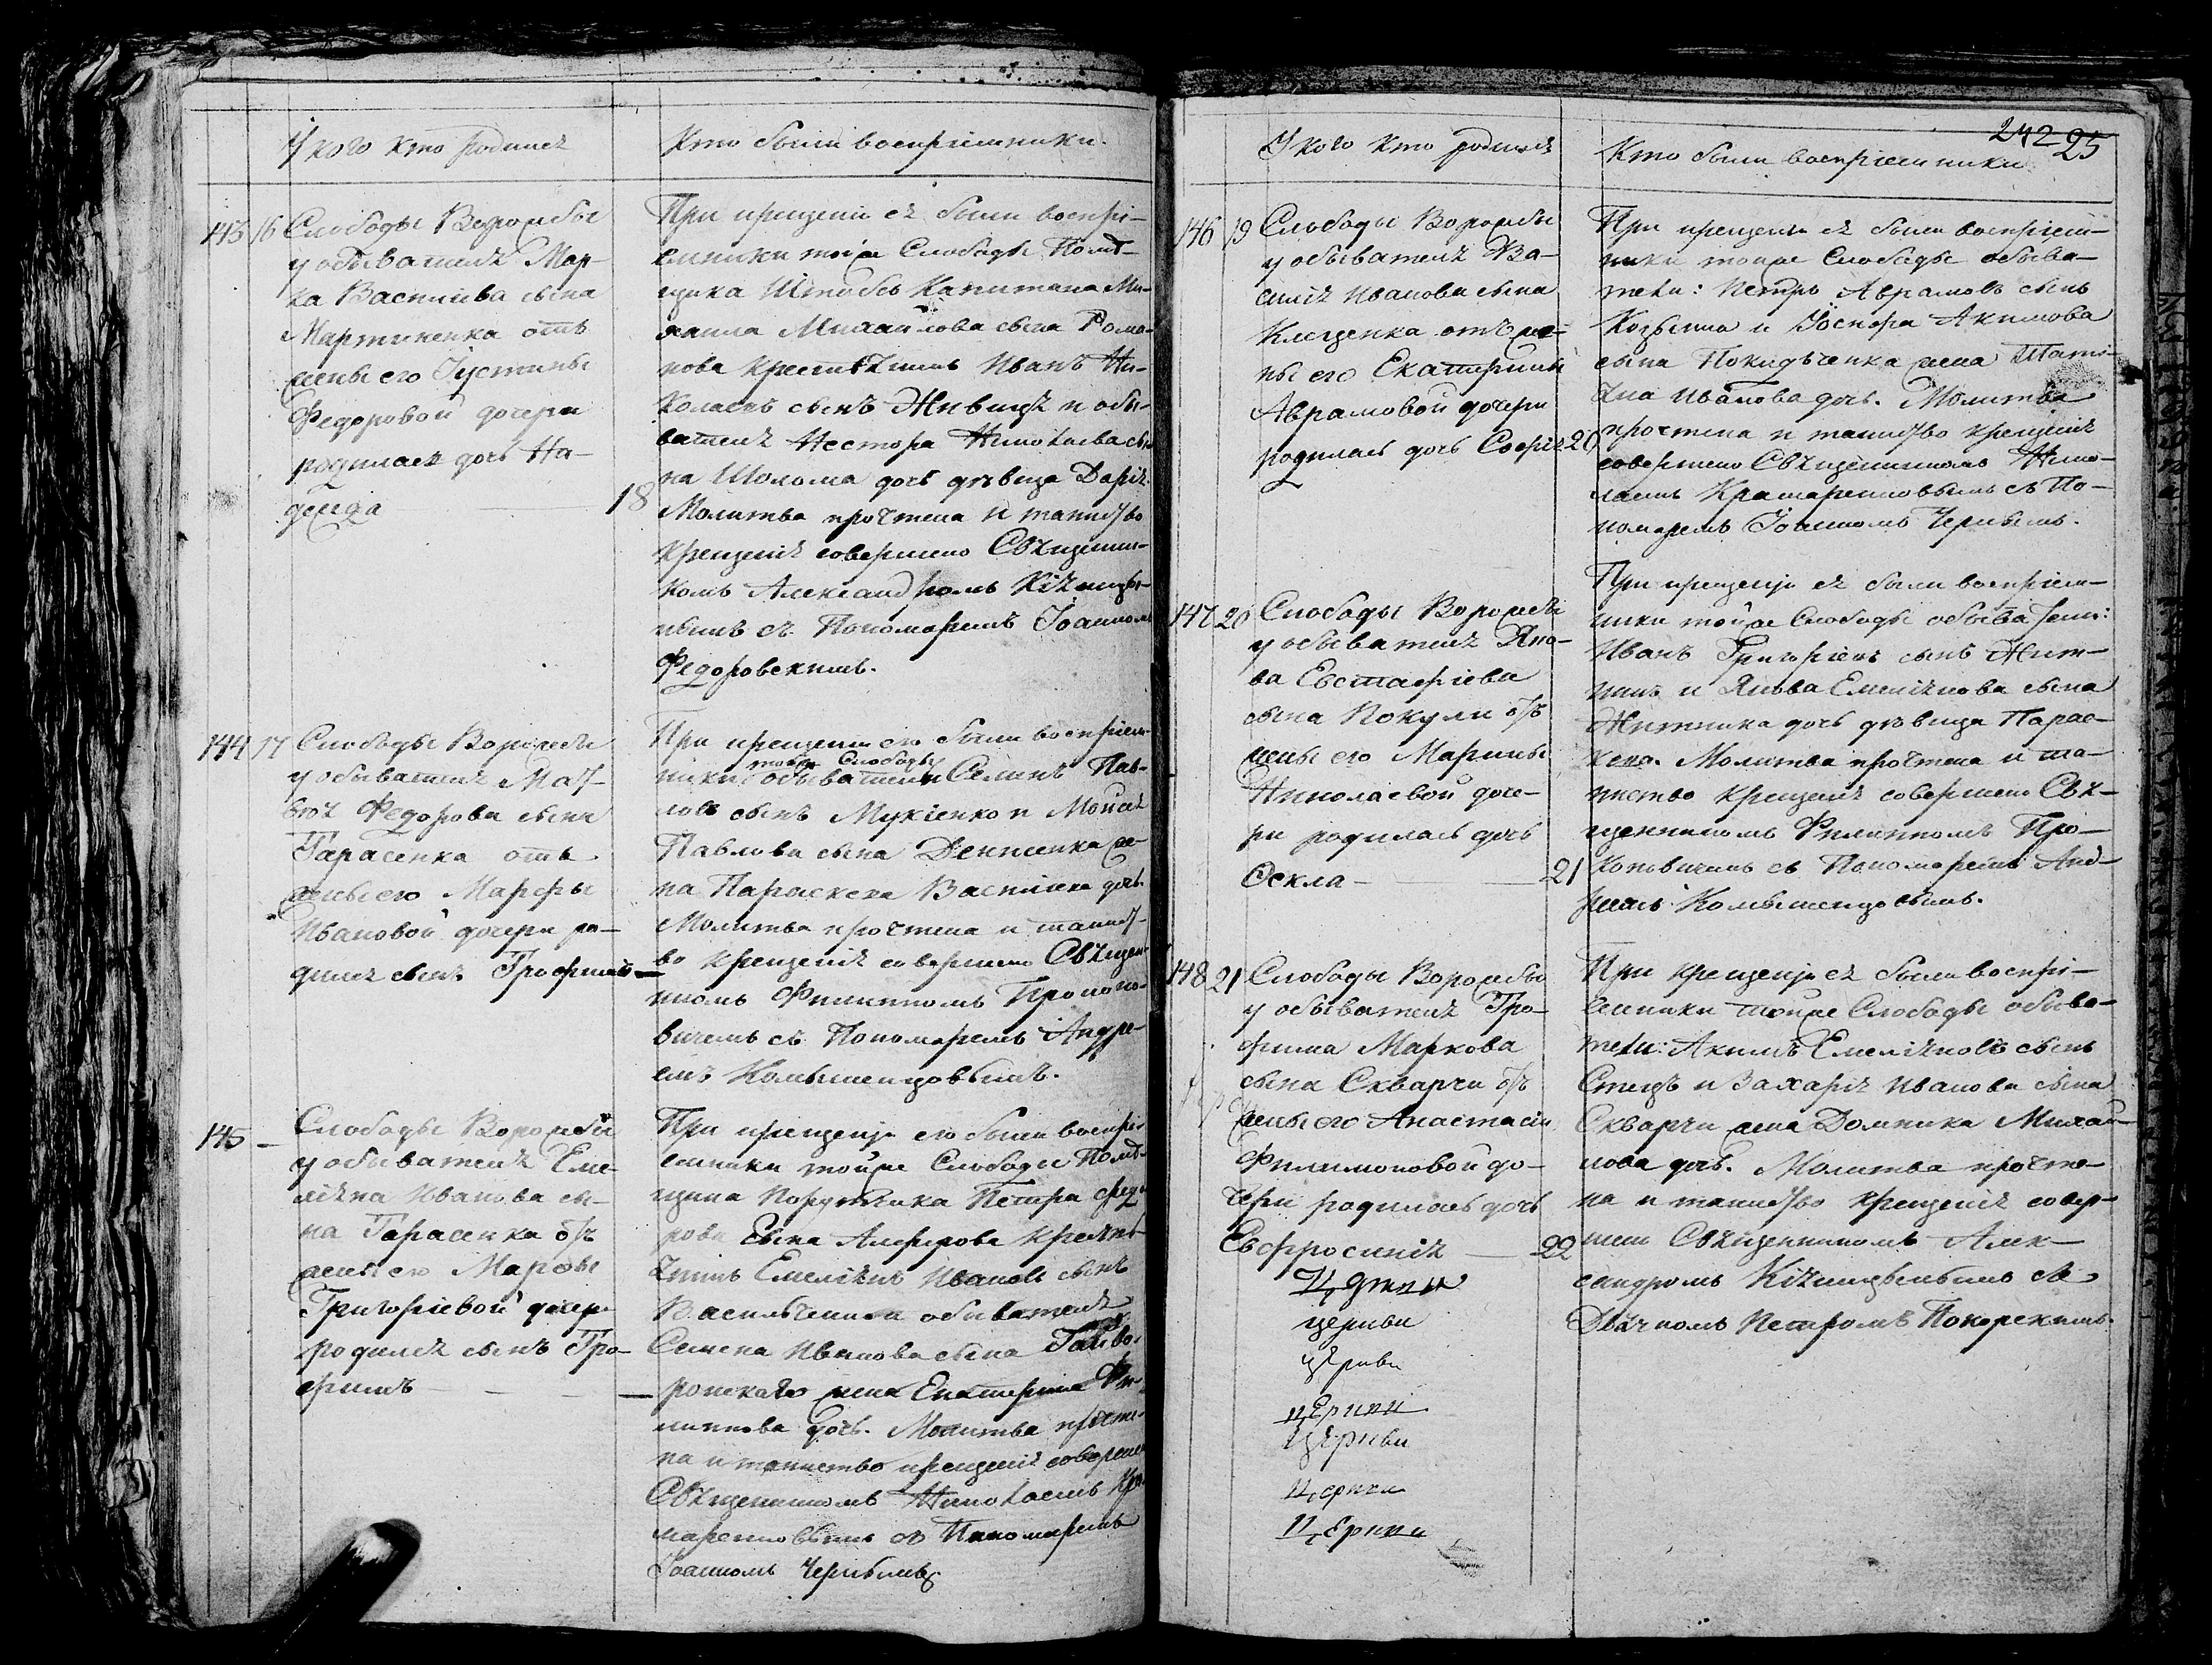 У кого кто родился
Кто были воспріемники.
143 16 Слободы Ворожбы
у обывателя Мар-
ка Васильева сына
Мартиненка отъ
жены его Іустины
Федоровой дочери
родилась дочь На-
дежда 18
При крещеніи ея были воспрі-
емники тоя же Слободы Помѣ-
щика Штабсъ Капитана Ми-
хаила Михайлова сына Рома-
нова крестьянинъ Иванъ Ни-
колаевъ сынъ и обы-
вателя Нестора Николаева сы-
на Шолома дочь дѣвица Дарія.
Молитва прочтена и таинство
крещенія совершено Священни-
комъ Александромъ
съ Пономаремъ Іоанномъ
Федоровскимъ.
144 17 Слободы Ворожбы
у обывателя Мат-
вея Федорова сына
Тарасенка отъ
жены его Марфы
Ивановой дочери ро-
дился сынъ Трофимъ
При крещеніи его были воспріем-
тойже Слободы
ники обыватели Пав-
ловъ сынъ и Мойсея
Павлова сына же-
на Параскева Васильева дочь.
Молитва прочтена и таинст-
во крещенія совершено Священ-
никомъ Филиппомъ Прокопо-
вичемъ съ Пономаремъ Андре-
емъ Колышенцовымъ.
145 Слободы Ворожбы
у обывателя Еме-
ліяна Иванова сы-
на Тарасенка отъ
жены его Марфы
Григоріевой дочери
родился сынъ Тро-
фимъ
При крещеніи его были воспрі-
емники тойже Слободы Помѣ-
щика Порутчика Петра Федо-
рова сына Алферова крестья-
нинъ Емеліянъ Ивановъ сынъ
Васильченко и обывателя
Семена Иванова сына Гайво-
ронскаго жена Екатерина Фи-
липпова дочь. Молитва прочте-
на и таинство крещенія совершено
Священникомъ Николаемъ Кра-
маренковымъ съ Пономаремъ
Іоанномъ Чернымъ.
242 25
У кого кто родился
Кто были воспріемники
146 19 Слободы Ворожбы
у обывателя Ва-
силія Иванова сына
Клещенка отъ же-
ны его Екатерины
Аврамовой дочери
родилась дочь Софія 20
При крещеніи ея были воспріем-
ники тойже Слободы обыва-
тели: Петръ Аврамовъ сынъ
Козьмина и Іосифа Акимова
сына жена Татія-
на Иванова дочь. Молитва
прочтена и таинство крещенія
совершено Священникомъ Нико-
лаемъ Крамаренковымъ съ По-
номаремъ Іоанномъ Чернымъ.
147 20 Слободы Ворожбы
у обывателя Яко-
ва Евстафіева
сына Кокули отъ
жены его Марины
Николаевой доче-
ри родилась дочь
Фекла 21
При крещеніи ея были воспріем-
ники тойже Слободы обыватели:
Иванъ Григоріевъ сынъ Жит-
никъ и Якова Емеліянова сына
Житника дочь дѣвица Парас-
кева. Молитва прочтена и та-
инство крещенія совершено Свя-
щенникомъ Филиппомъ Про-
коповичемъ съ Пономаремъ Анд-
реемъ Колышенцовымъ.
148 21 Слободы Ворожбы
у обывателя Тро-
фима Маркова
сына Скварчи отъ
жены его Анастасіи
Филимоновой до-
чери родилась дочь
Евфросинія 22
При крещеніи ея были воспрі-
емники тойже Слободы обыва-
тели: Акимъ Емеліяновъ сынъ
Стецъ и Захарія Иванова сына
Скварчи жена Домника Михай-
лова дочь. Молитва прочте-
на и таинство крещенія совер-
шено Священникомъ Алек-
сандромъ съ
Дьячкомъ Петромъ Покорскимъ.
церкви
церкви
церкви
церкви
церкви
церкви